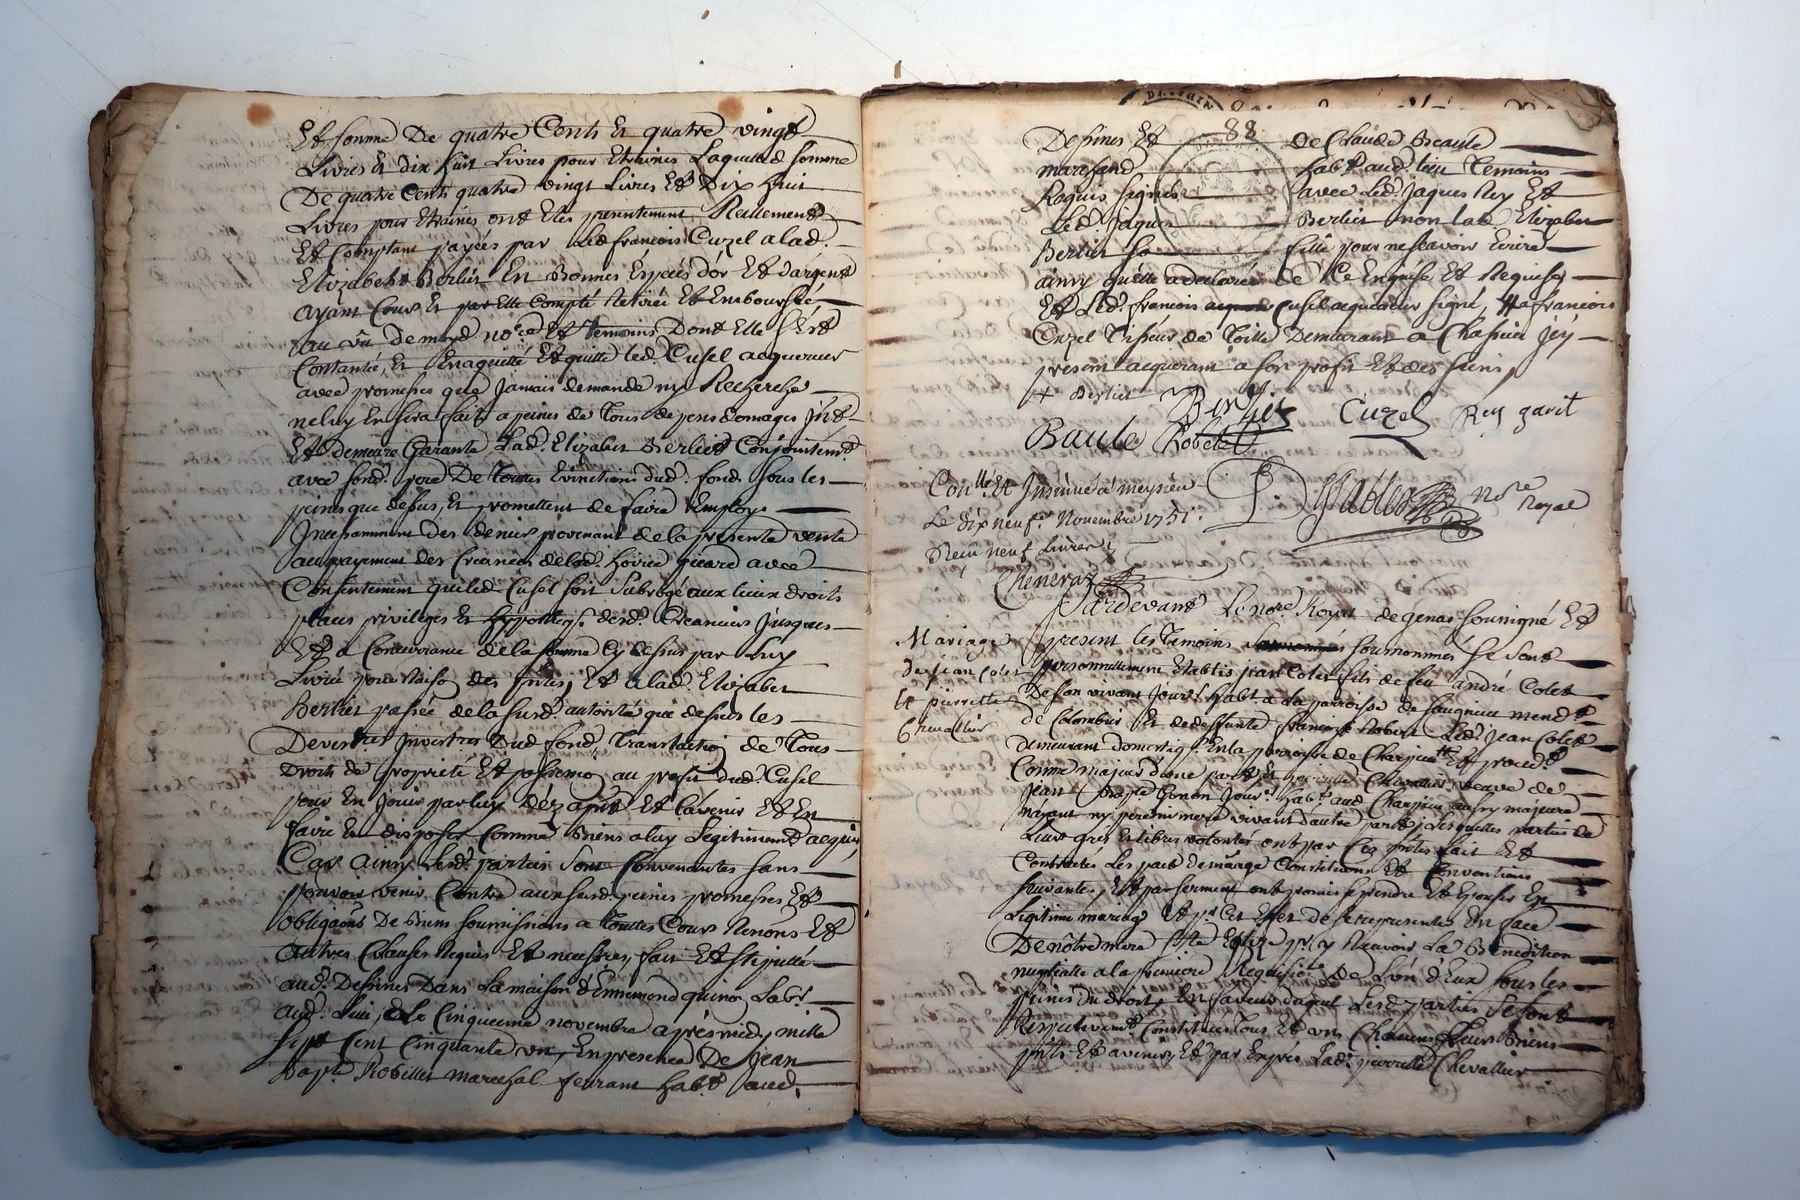 Et somme De quatre Cents Et quatre vingt
Livres Et dix huit Livres pour Etraines Laquelle somme
De quatre Cents quatre vingt Livres Et Dix huit
Livres pour Etraines ont Etés presentement Reellement
Et Comptant payées par Led francois Cuzel a lad.
Elizabeth Berlier En Bonnes Espèces d'or Et d'argent
ayant Cours Et par Elle Compté Retiré Et Emboursée
au vû de moyd nore Et Temoins Dont Elle s'Est
Contantée, Et En a quitté Et quitte led Cusel acquereur
avec promesse que Jamais demande ny Recherche
ne luy En sera fait a peines de Tous depens domages
Et demeure Garante Lad. Elizabet Berlier Conjointemt
avec sond. pere De Toutes Evinctions dud. fond. sous les
peines que desus, Et promettent de faire Employ
Incessamment des deniers provenant de la presente vente
au payement des Creanciers de lad. hoirie avec
Consentement que led Cusel soit Subrogé aux lieux droits
places privileges Et hyppotheqs desd. Creanciers Jusques
Et a Concurrance de la somme Cy desus par Luy
Livrée pour Raison des pntes, Et a lad. Elizabet
Berlier passée de la susd. autorité que desus les
Devestes Investes Dud fond, Translation de Tous
Droits de propriété Et possession au profit dud. Cusel
pour En Jouir par luy déz apnt Et l'avenir Et En
faire Et disposer Comme Biens a luy Legitimemt acquis
Car ainsy Lesd. parties sont Convenantes sans
pouvoir venir Contre aux susd. peines promesses Et
obligaons De Biens soumissions a Touttes Cours Renons Et
autres Clauses Requis Et necessres, fait Et stipullé
aud. Desines Dans La maison d'Ennemond quinon habt
aud. Lieu, Le Cinquieme novembre après midy mille
sept Cent Cinquante un, En presence De Jean
Bapte Robillet Marechal ferrant habt aud.
88
Desines Et de Claude Beaule
marchand habt aud. lieu Temoins
Requis signés avec Led. Jaques Rey Et
Led. Jaques Berlier non lad. Elizabet
Berlier sa fille pour ne scavoir Ecrire
ainsy qu'elle a declaré de Ce Enquise Et Requise
Et Led. francois Cusel acquereur signé, # a francois
Cuzel Tisseur de Toille Demeurant a Chassieu Jcy
present acquerant a son profit Et des siens
# Berlier Berlier Cuzel Rey gavit
Baule Robelet
nore Royal
Conllé. Et Jnsinué a meysieu
Le dix neufe. Novembre 1751.
Reçu neuf Livres
Cheneraz
Pardevant Le nore Royal de genas soussigné Et
Mariage
de Jean Colet
Et pierrette
Chevallier
present les Temoins sousnommés se sont
personnellement Etablis jean Colet fils de feu andré Colet
De son vivant Jourr habt a la parroisse de Saugnieu mendt
de Colombier Et de deffunte francoise Robert Led. Jean Colet
demeurant domestiq. En la parroisse de Charpieu Et proced.
Comme majeur d'une part Et pierrette Chevallier veuve de
Jean Gonon Jourr. habt. aud Charpieu aussy majeure
n'ayant ny pere ny mere vivant d'autre part; Lesquelles parties de
Leurs grés Et libres volontés ont par Ces pntes fait Et
Contractés Les pacts de mariage Constitutions Et Conventions
suivantes, Et par serment ont promis se prendre Et Epouser En
Legitime mariage Et pr Cet Effet de se representer En face
De nôtre mere ste Eglise pr y Recevoir La Benediction
nuptialle a la premiere Requisie. de L'un d'Eux sous les
peines du droit, En faveur duquel Lesd. parties se sont
Respectivemt Constitués Tous Et un Chacuns Leurs Biens
pnts Et avenir, Et par Exprés Lad. pierrette Chevallier